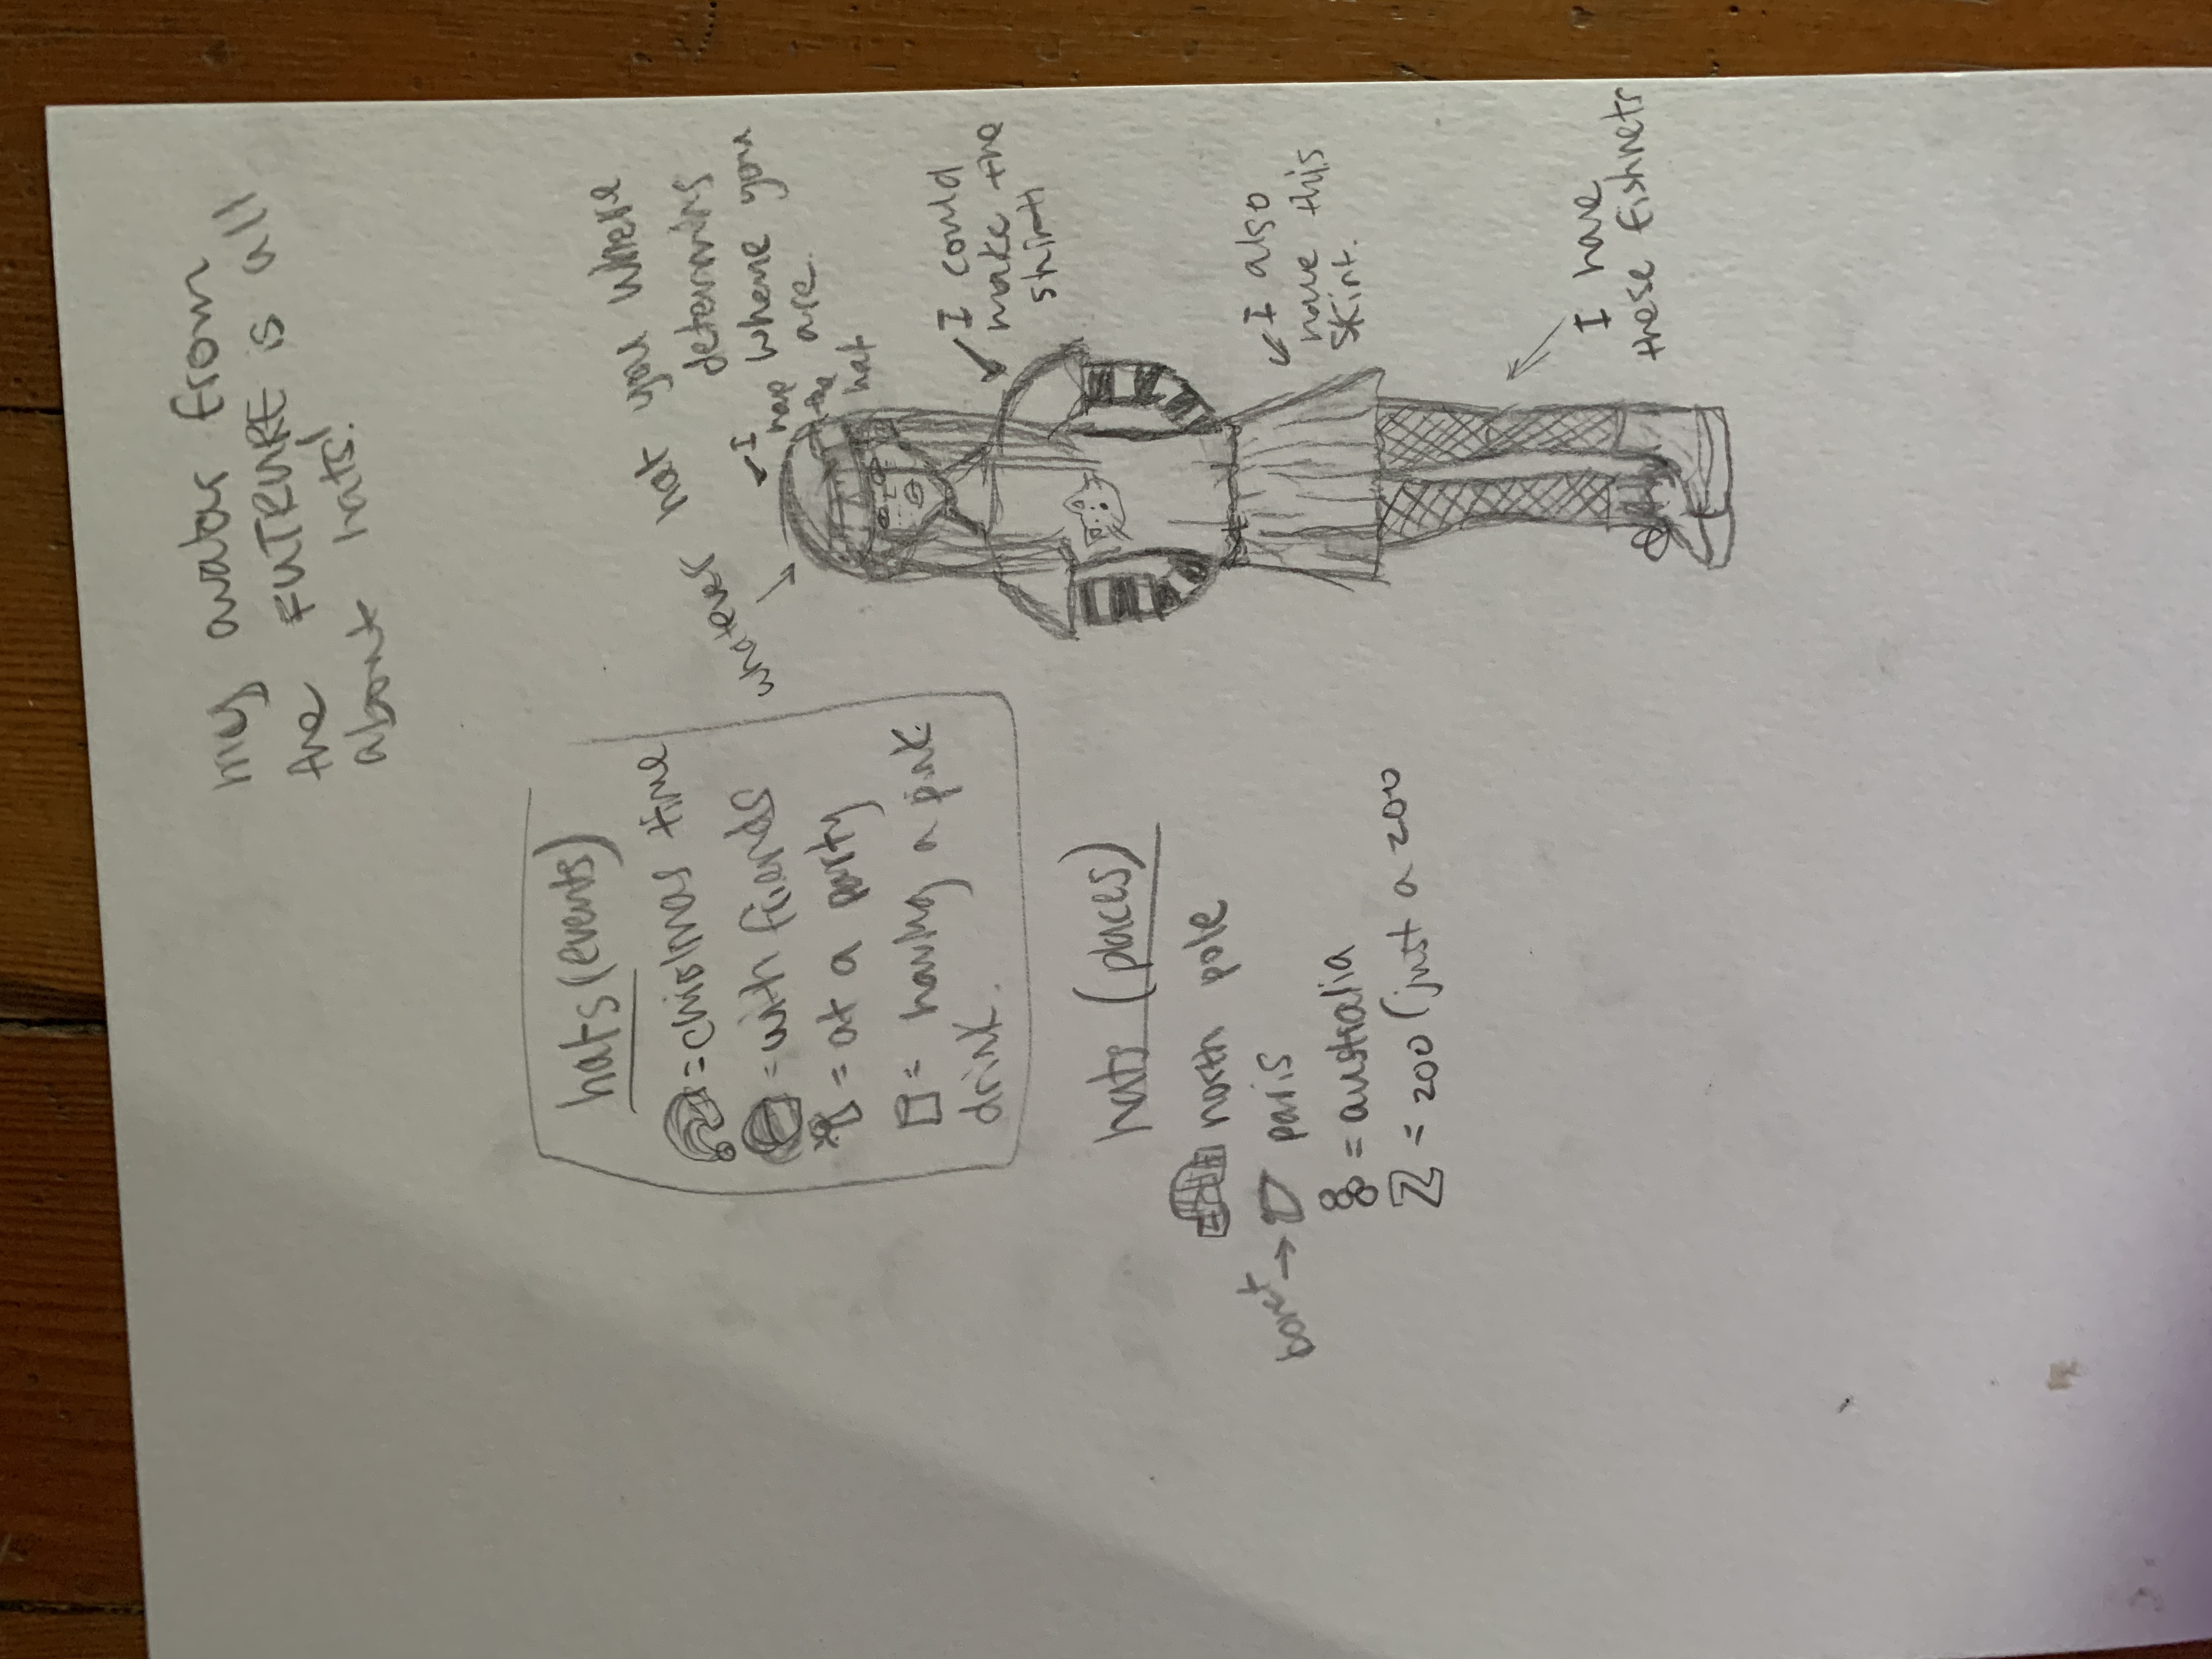 my avatar from
the FUTRURE is all
about hats!
whatever hat you where
determins
where you
are.
I have
the
hat
I could
make the
shirt
I also
have this
skirt.
I have
these fishnets
hats (events)
= christmas time
= with friends
= at a party
= having a pink
drink.
hats (places)
north pole
→ paris
= australia
Z = zoo (just a zoo